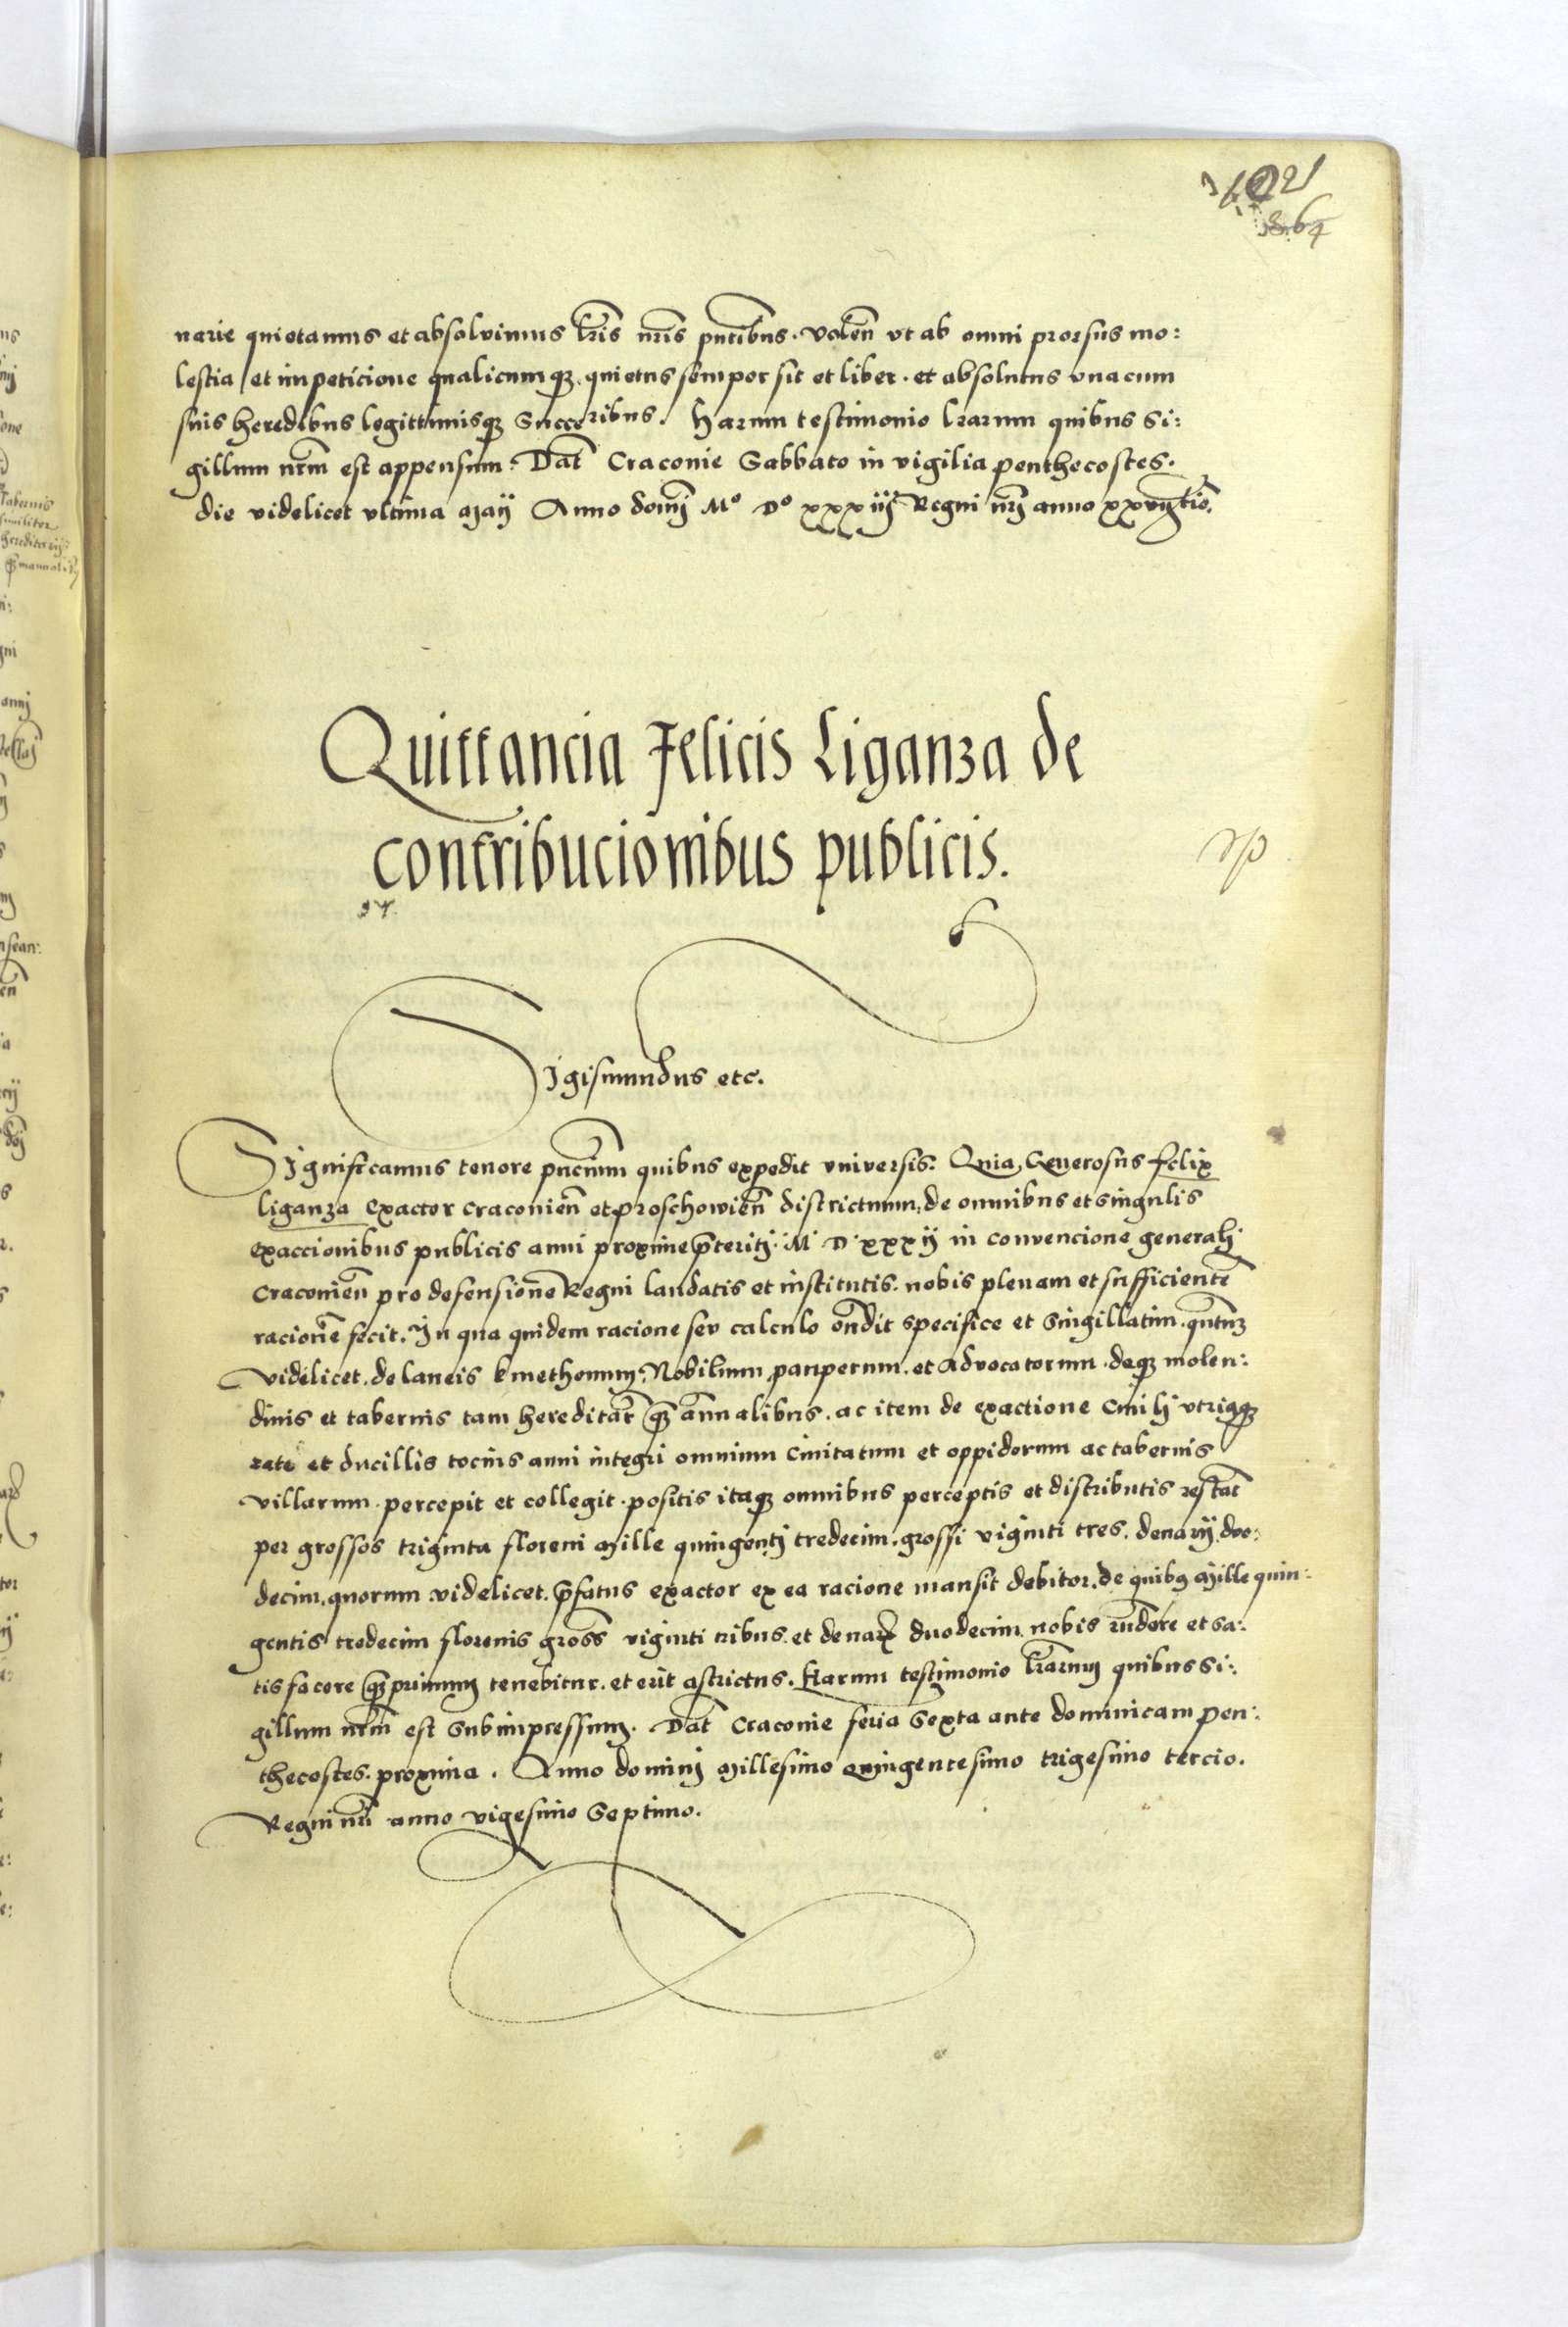 364
narie quietamus et absolvimus lr̃is nr̃is pñtibus. volen̄ vt ab omni prorsus mo:
lestia et impeticione qualicumqʒ quietus semper sit et liber. et absolutus vna cum
suis heredibus legittimisqʒ Succeribus. Harum testimonio lrarum quibus Si:
gillum nr̃m est appensum. Dat̃ Craconie Sabbato in vigilia penthecostes.
die videlicet vltima maij Anno domj̃ Mº Dº xxxiij Regni nr̃j anno xxvigᵗⁱº.
Quittancia Felicis Liganza de
contribucionibus publicis.
Sigismundus etc.
Significamus tenore pñcium quibus expedit vniversis. Quia Generosus felix
liganza Exactor Craconien̄ et proschowien̄ districtuum, de omnibus et singulis
exaccionibus publicis anni proxime p̃teritj. M D xxxij in convencione generalj
Craconien̄ pro defensione Regni laudatis et institutis. nobis plenam et sufficientẽ
racionẽ fecit. In qua quidem racione sev calculo on̄dit specifice et Singillatim. qũtum
videlicet. de laneis kmethonum, Nobilium pauperum. et Advocatorum. deqʒ molen:
dinis et tabernis tam hereditar̃ qʒ an̄nalibus. ac item de exactione Civili vtriusqʒ
rate et ducillis tocius anni integri omnium Civitatum et oppidorum ac tabernis
villarum. percepit et collegit. positis itaqʒ omnibus perceptis et distributis restat̃
per grossos triginta floreni mille quingentj tredecim. grossi viginti tres. denarij duo:
decim. quorum videlicet. p̃fatus exactor ex ea racione mansit debitor. de quibꝰ mille quin:
gentis tredecim florenis gross̃ viginti tribus et denar̃ duodecim nobis rñdere et sa:
tisfacere qʒprimum tenebitur. et erit astrictus. Harum testimonio lr̃arum quibus Si:
gillum nr̃m est Subimpressum. Dat̃ Craconie feria Sexta ante dominicam pen:
thecostes. proxima. Anno dominj millesimo quingentesimo trigesimo tercio.
Regni nr̃i anno vigesimo Septimo.